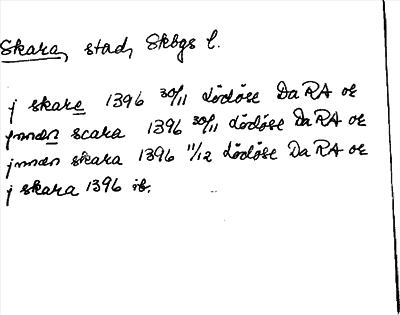 Skara, stad, Skbgs l.
j skare 1396 30/11 Lödöse DaRA or
jnnæn scara 1396 30/11 Lödöse DaRA or
jnnæn skara 1396 11/12 Lödöse DaRA or
j skara 1396 ib.